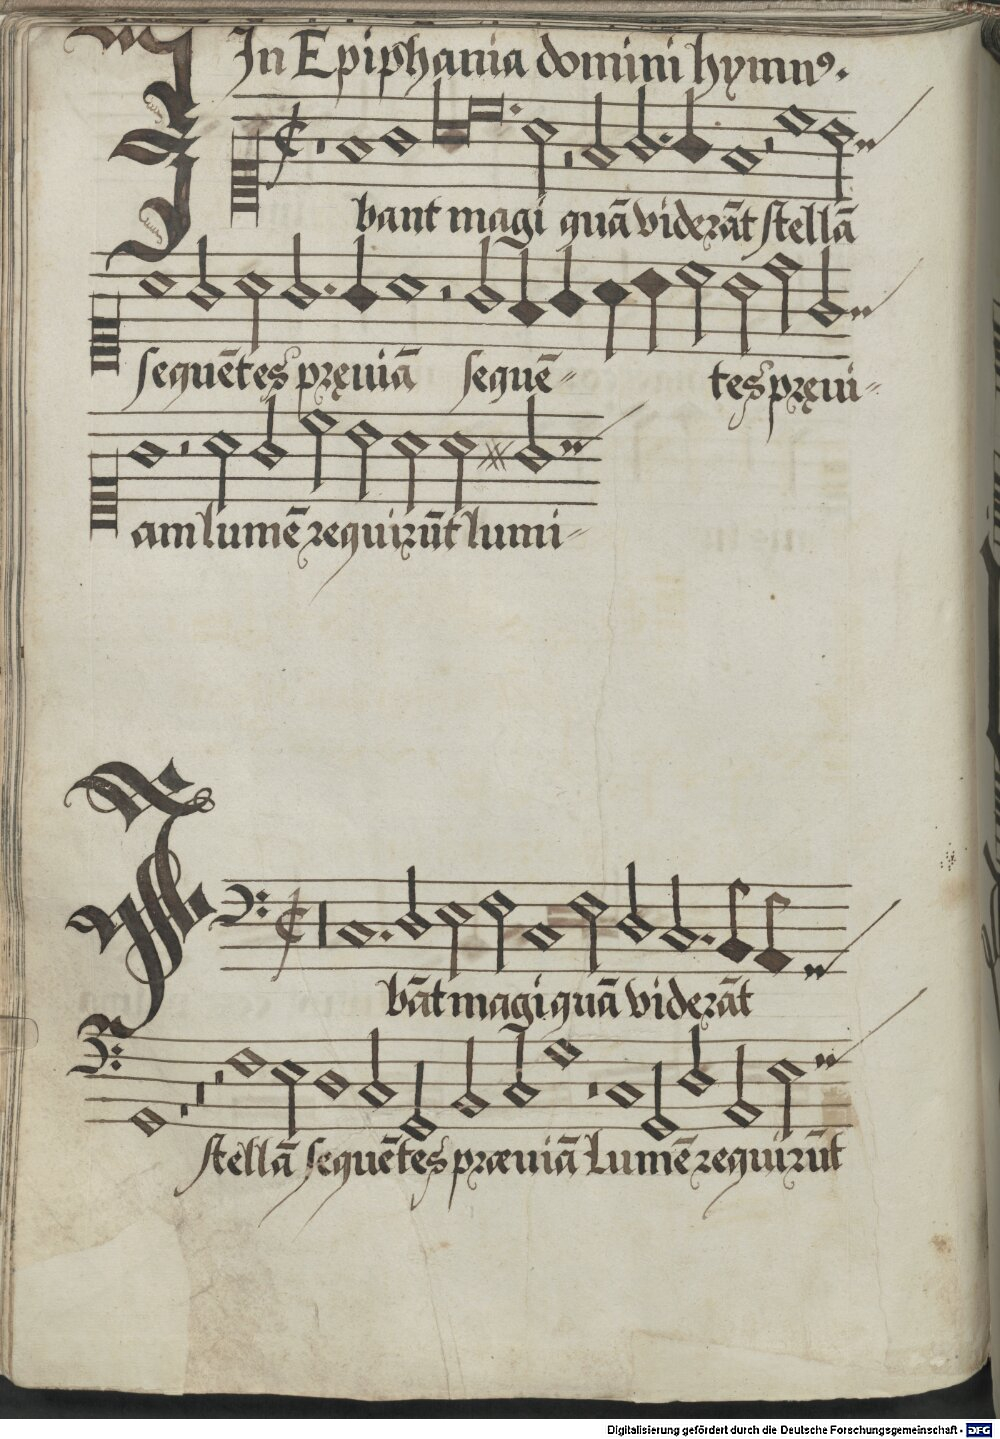 In Epiphania domini hymnꝰ.
I
bant magi quā viderāt stellā
sequētes pręviā sequē-
tes pręvi-
am lumē requirūt lumi-
I
bāt magi quā viderāt
stellā sequētes præviā Lumē requirūt
Digitalisierung gefördert durch die Deutsche Forschungsgemeinschaft - DFG